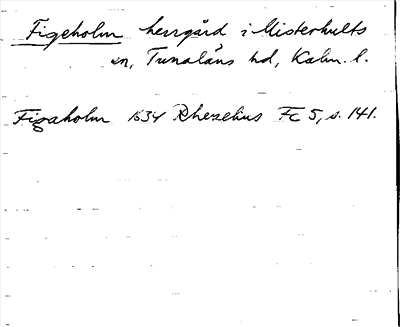 Figeholm herrgård i Misterhults
sn, Tunaläns hd, Kalm. l.
Figaholm 1634 Rhezelius Fc 5, s. 141.